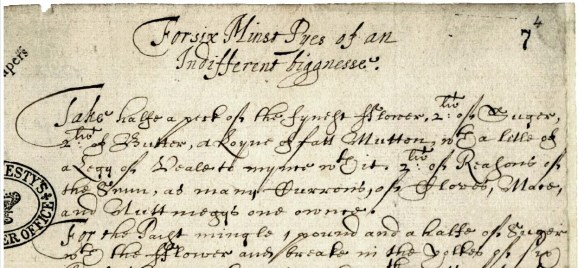 For six Minst Pyes of an
Indifferent biggnesse.
7 4
apers
Take halfe a peck of the fynest fflower, 2:li of Suger,
2:li of Butter, a Loyne of fatt Mutton, wth a litle of
a Legg of Veale to mynce wth it. 2:li of Reasons of
the Sunn, as many Currons, of Cloves, Mace,
and Nuttmeggs one ownce.
For the Past mingle 1 pound and a halfe of Suger
wth the fflower and breake in the yolkes of six
ESTY'S
ER OFFICE